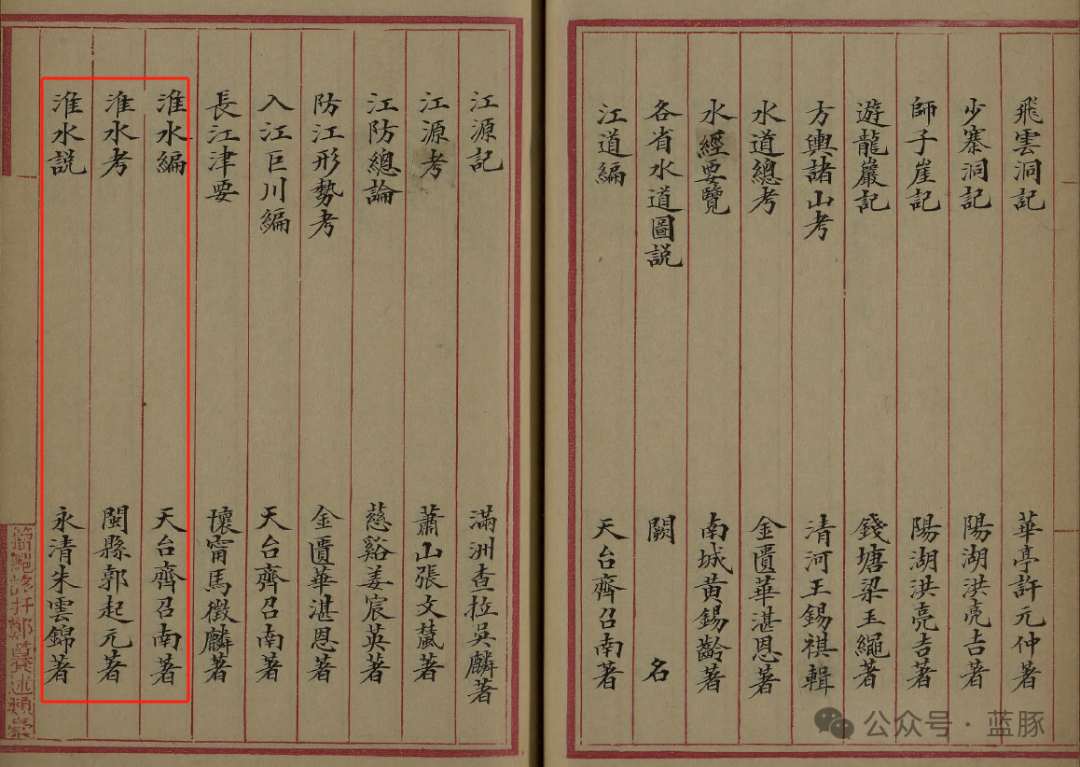 飛雲洞記 華亭許元仲著
少寨洞記 陽湖洪亮吉著
師子崖記 陽湖洪亮吉著
遊龍巖記 錢塘梁玉繩著
方輿諸山考 清河王錫祺輯
水道總考 金匱華湛恩著
水經要覽 南城黃錫齡著
各省水道圖説 闕名
江道編 天台齊召南著
江源記 滿洲查拉吳麟著
江源考 蕭山張文虌著
江防總論 慈谿姜宸英著
防江形勢考 金匱華湛恩著
入江巨川編 天台齊召南著
長江津要 懷甯馬徵麟著
淮水編 天台齊召南著
淮水考 閩縣郭起元著
淮水説 永清朱雲錦著
公众号·蓝豚